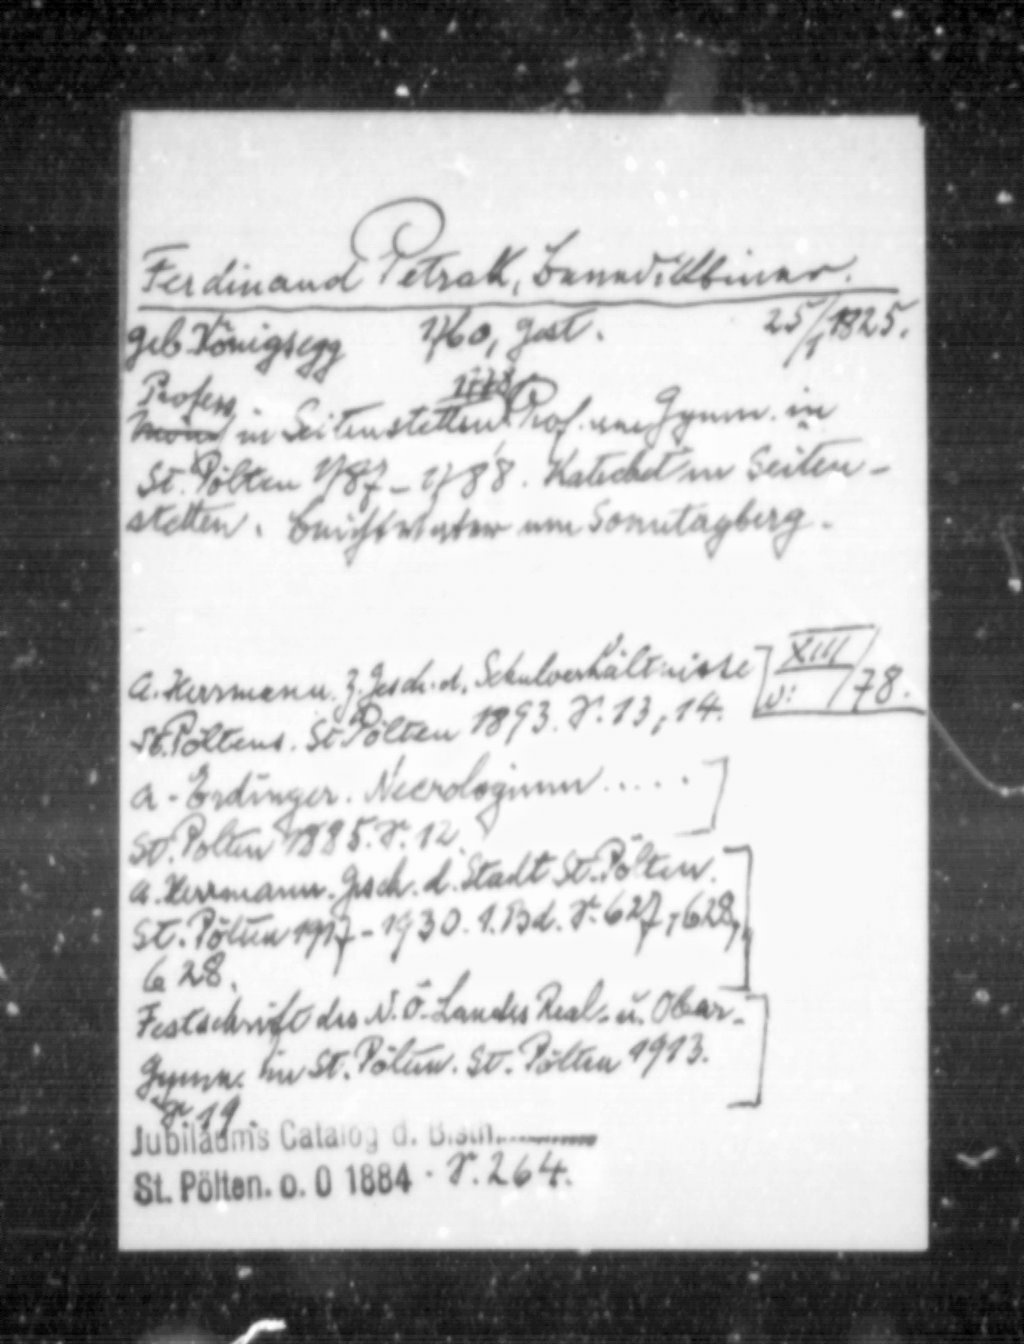 Ferdinand Petrak, Benediktiner.
geb. Königsegg 1760, gest. 25/1 1825.
Profess
in Seitenstetten Prof. am Gymn. in
St. Pölten 1787 - 1788. Katechet in Seiten-
stetten. am Sonntagberg.
A. Herrmann. Z. Gesch. d. Schulverhältnisse XIII/78.
St. Pöltens. St. Pölten 1893. S. 13, 14.
A. Erdinger. Necrologium .....
St. Pölten 1885. S. 12.
A. Herrmann. Gesch. d. Stadt St. Pölten.
St. Pölten 1917 - 1930. 1. Bd. S. 627, 628,
628.
Festschrift des N. Ö. Landes Real- u. Ober-
Gymn. in St. Pölten. St. Pölten 1913.
S. 19.
Jubiläums Catalog d. Bisth.
St. Pölten. o. O 1884 . S. 264.